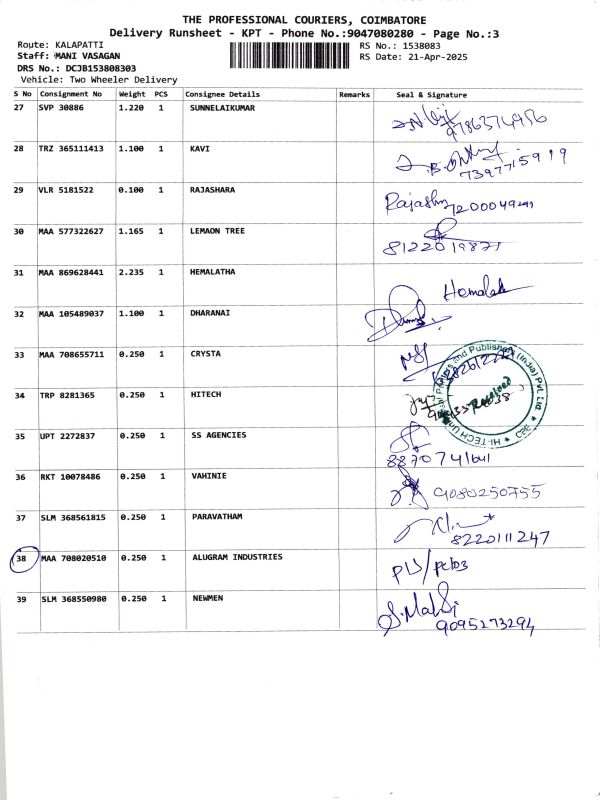 THE PROFESSIONAL COURIERS, COIMBATORE
Delivery Runsheet - KPT - Phone No.:9047080280 - Page No.:3
Route: KALAPATTI
RS No.: 1538083
Staff: MANI VASAGAN
RS Date: 21-Apr-2025
DRS No.: DCJB153808303
Vehicle: Two Wheeler Delivery
S No Consignment No Weight PCS Consignee Details Remarks Seal & Signature
27 SVP 30886 1.220 1 SUNNELAIKUMAR
9786374956
28 TRZ 365111413 1.100 1 KAVI
7397715919
29 VLR 5181522 0.100 1 RAJASHARA
30 MAA 577322627 1.165 1 LEMAON TREE
8122019871
31 MAA 869628441 2.235 1 HEMALATHA
Hemalatha
32 MAA 105489037 1.100 1 DHARANAI
33 MAA 708655711 0.250 1 CRYSTA
34 TRP 8281365 0.250 1 HITECH
Received
35 UPT 2272837 0.250 1 SS AGENCIES
36 RKT 10078486 0.250 1 VAHINIE
9080250755
37 SLM 368561815 0.250 1 PARAVATHAM
8220111247
38 MAA 708020510 0.250 1 ALUGRAM INDUSTRIES
39 SLM 368550980 0.250 1 NEWMEN
9095273294